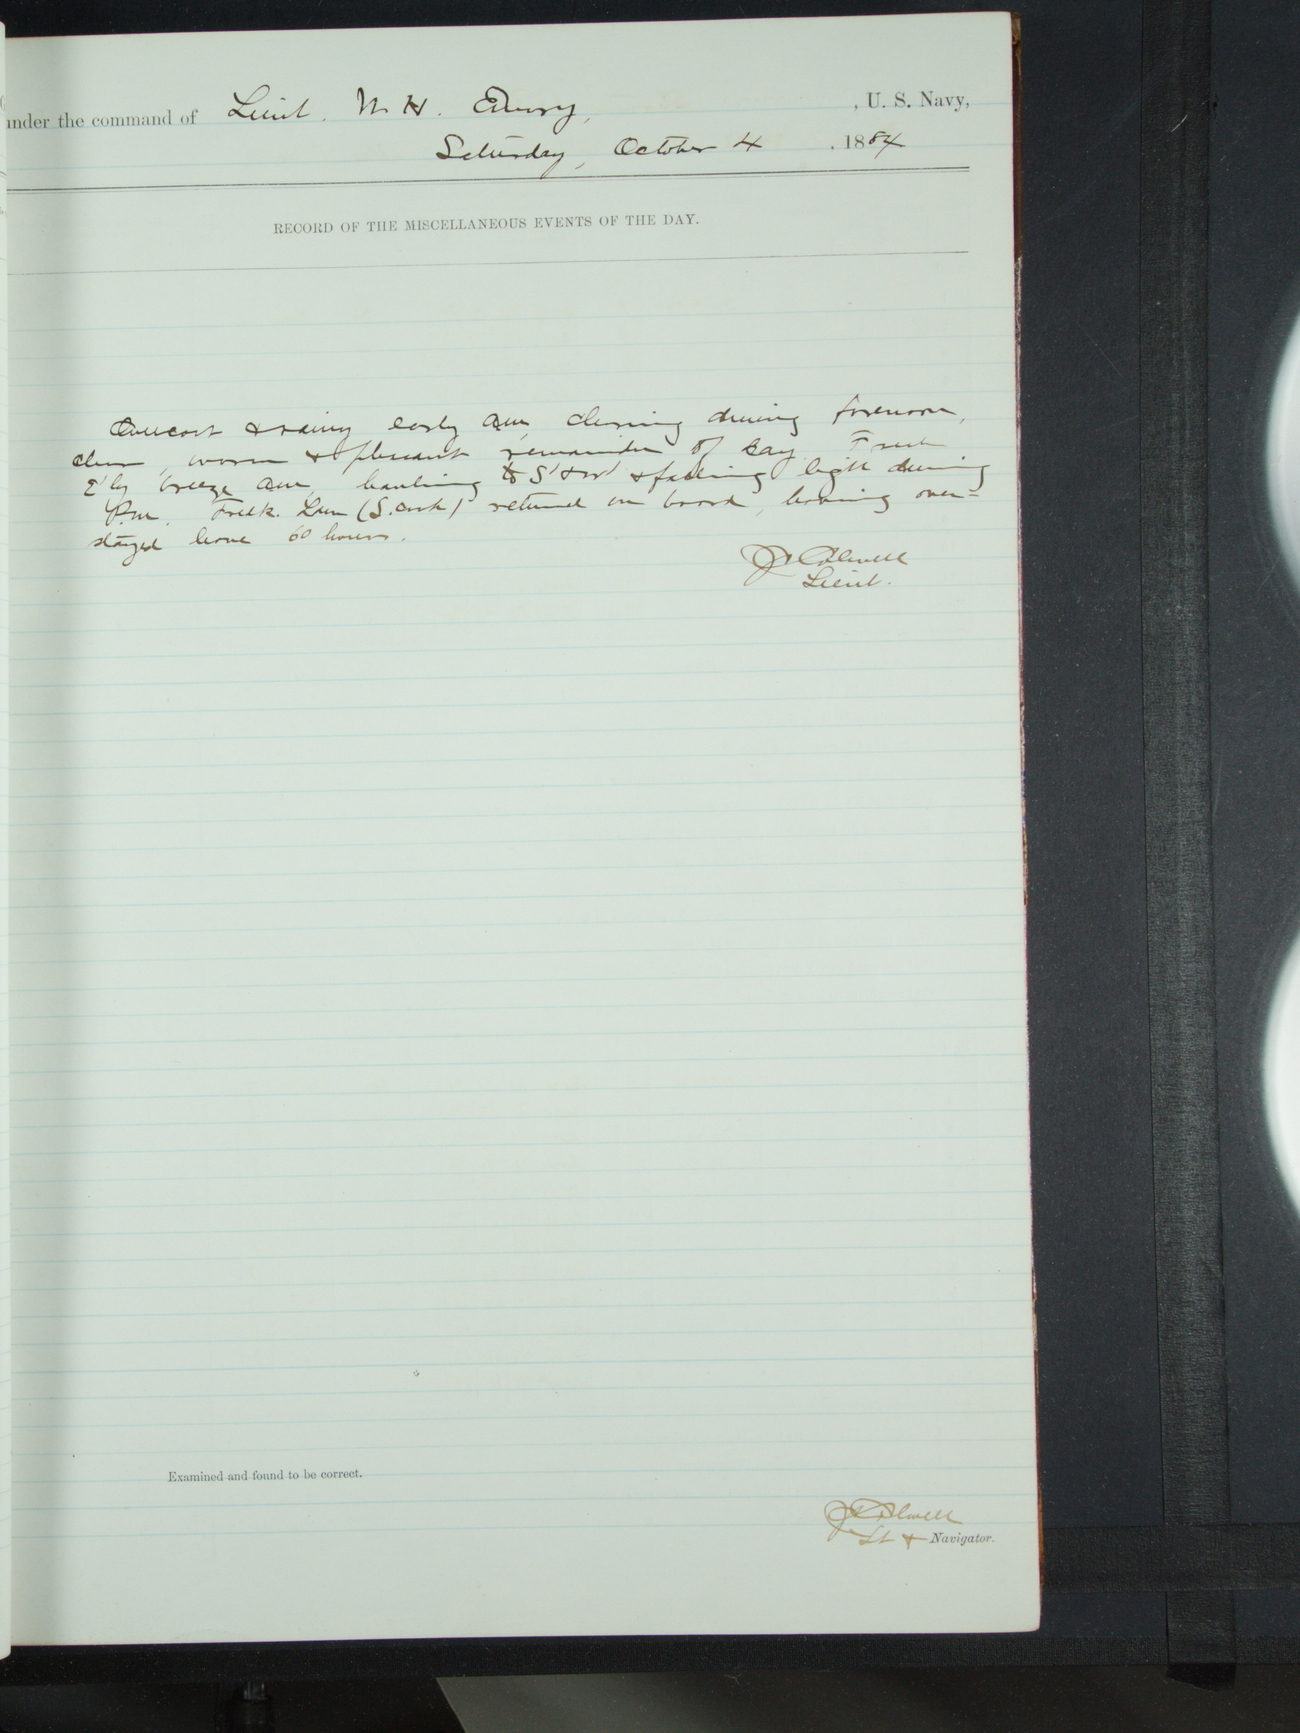 under the command of Lieut. W. H. Emory, , U. S. Navy,
Saturday, October 4 , 1884
RECORD OF THE MISCELLANEOUS EVENTS OF THE DAY.
Overcast & rainy early am, clearing during forenoon,
clear, warm & pleasant remainder of day. Fresh
E'ly breeze am, hauling to S'd & W'd & falling light during
P.m. Fredk. (S. Cook) returned on board, having over-
stayed leave 60 hours.
J C Colwell
Lieut.
Examined and found to be correct.
J C Colwell
Lt & Navigator.